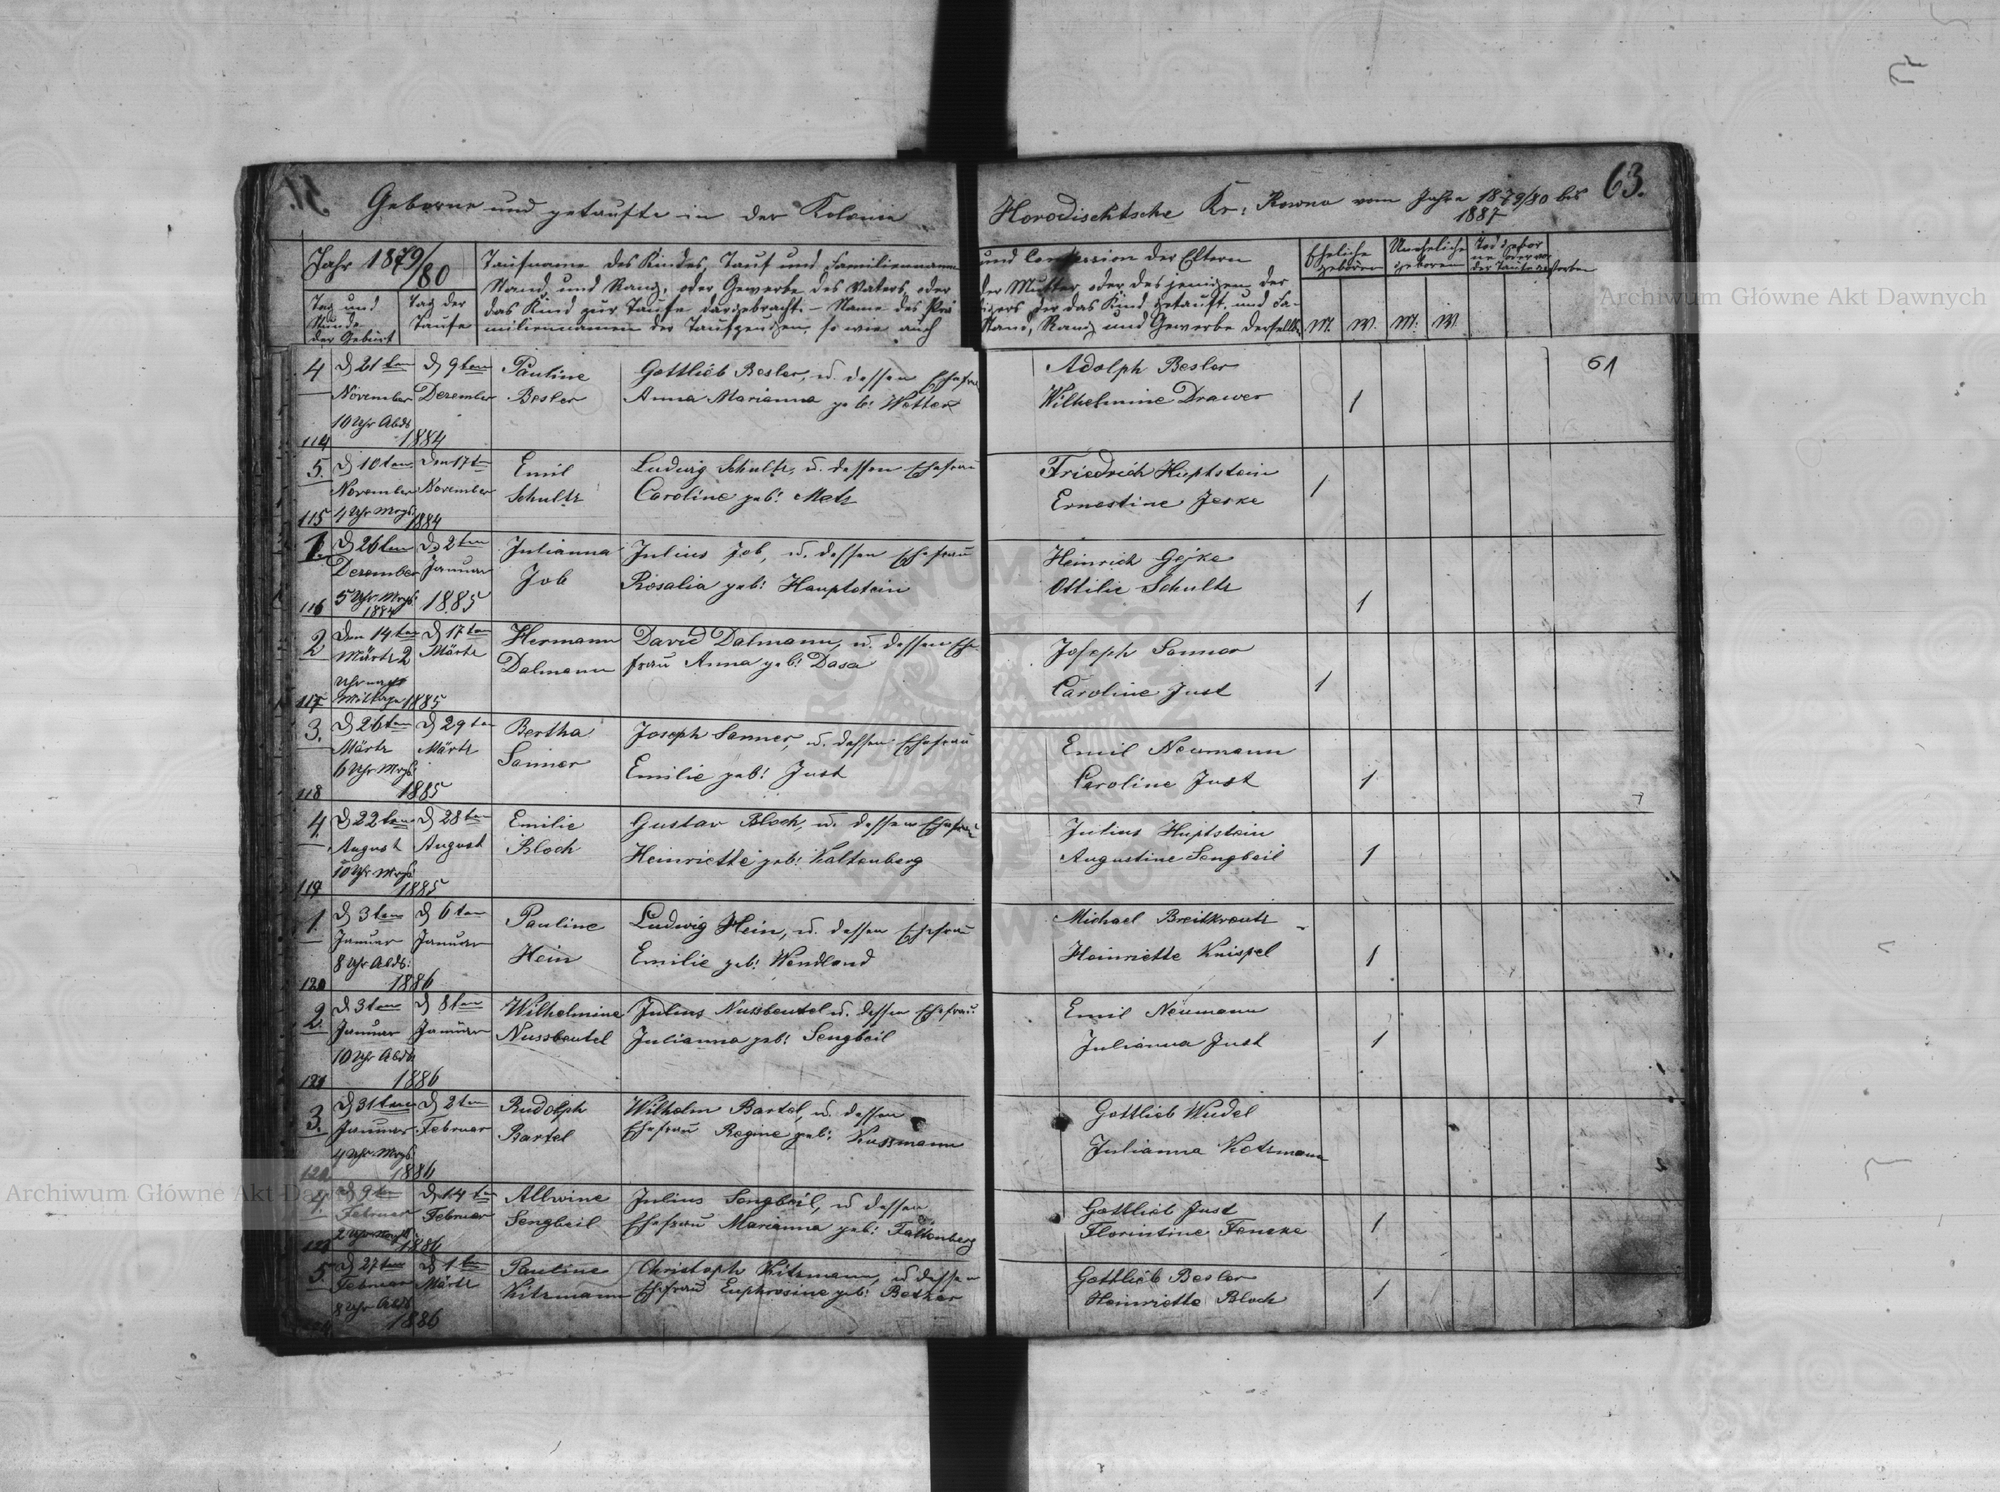 Geborne und getaufte in der Kolonie
Horodischtsche Kr: Rowno vom Jahre 1879/80 bis
1887
63.
Jahr 1879/80
Tag und
Stunde
der Geburt
Tag der
Taufe
Taufname des Kindes, Tauf und Familiennamen
Stand und Rang, oder Gewerbe des Vaters oder
das Kind zur Taufe dargebracht. – Name des Pre
miliennamen der Taufzeugen, so wie auch
und Confession der Eltern
der Mutter oder desjenigen der
digers der das Kind getauft, und Fa-
Stand, Rang und Gewerbe derselben
Eheliche
geboren
Uneheliche
geboren
M. W. M. W.
4 D 21ten D 9ten Pauline Gottlieb Besler, u. dessen Ehefrau Adolph Besler 61
November Dezember Besler Anna Marianna geb: Wetter Wilhelmine Drawer 1
10 Uhr Abds
114 1884
5. D 10ten Den 17ten Emil Ludwig Schultz, u. dessen Ehefrau Friedrich Huptstein
November November Schultz Caroline geb: Metz Ernestine Jeske 1
115 4 Uhr Mrgs. 1884
1. D 26ten D 2ten Julianna Julius Job, u. dessen Ehefrau Heinrich
Dezember Januar Job Rosalia geb: Hauptstein Ottilie Schultz 1
116 5 Uhr Mrgs: 1884 1885
2 Den 14ten D 17ten Hermann David Dalmann, u. dessen Ehe- Joseph Sanner
Märtz 2 Märtz Dalmann frau Anna geb: Dasa Caroline Just 1
Uhr nach
117 Mittags 1885
3. D 26ten D 29ten Bertha Joseph Sanner, u. dessen Ehefrau Emil Neumann
Märtz Märtz Sanner Emilie geb: Just Caroline Just 1
6 Uhr Mrgs:
118 1885
4 D 22ten D 28ten Emilie Gustav Bloch, u. dessen Ehefrau Julius Huptstein
August August Bloch Heinriette geb: Kaltenberg Augustine Sengbeil 1
10 Uhr Mrgs
119 1885
1. D 3ten D 6ten Pauline Ludwig Hein, u. dessen Ehefrau Michael Breitkreutz
Januar Januar Hein Emilie geb: Wendland Heinriette Knispel 1
8 Uhr Abds:
120 1886
2. D 3ten D 8ten Wilhelmine Julius Nussbeutel u. dessen Ehefrau Emil Neumann
Januar Januar Nussbeutel Julianna geb: Sengbeil Julianna Just 1
10 Uhr Abds
121 1886
3. D 31ten D 2ten Rudolph Wilhelm Bartel, u. dessen Gottlieb Wudel
Januar Februar Bartel Ehefrau Regine geb: Kussmann Julianna Kotzmann
4 Uhr Mrgs
122 1886
4. D 9ten D 14ten Allwine Julius Sengbeil, u dessen Gottlieb Just
Februar Februar Sengbeil Ehefrau Marianna geb: Faltenberg Florintine Fencke 1
2 Uhr Mrgs
123 1886
5. D 27ten D 1ten Pauline Christoph Kitzmann, u dessen Gottlieb Besler
Februar Märtz Kitzmann Ehefrau Euphrosine geb: Becker Heinriette Bloch 1
8 Uhr Abds
1886
Archiwum Główne Akt Dawnych
Archiwum Główne Akt Dawnych